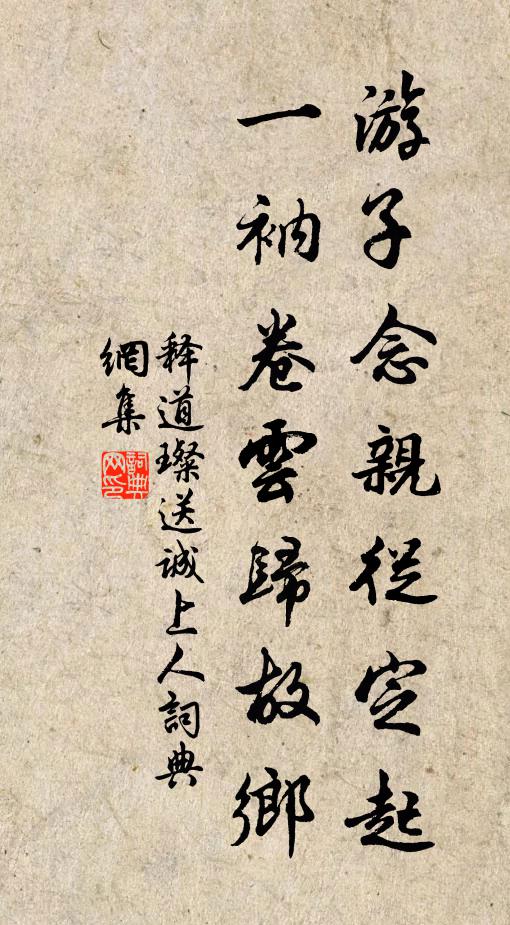 游子念親從定起
一衲卷雲歸故鄉
释道璨送诚上人詞典
網集
詞典
网印